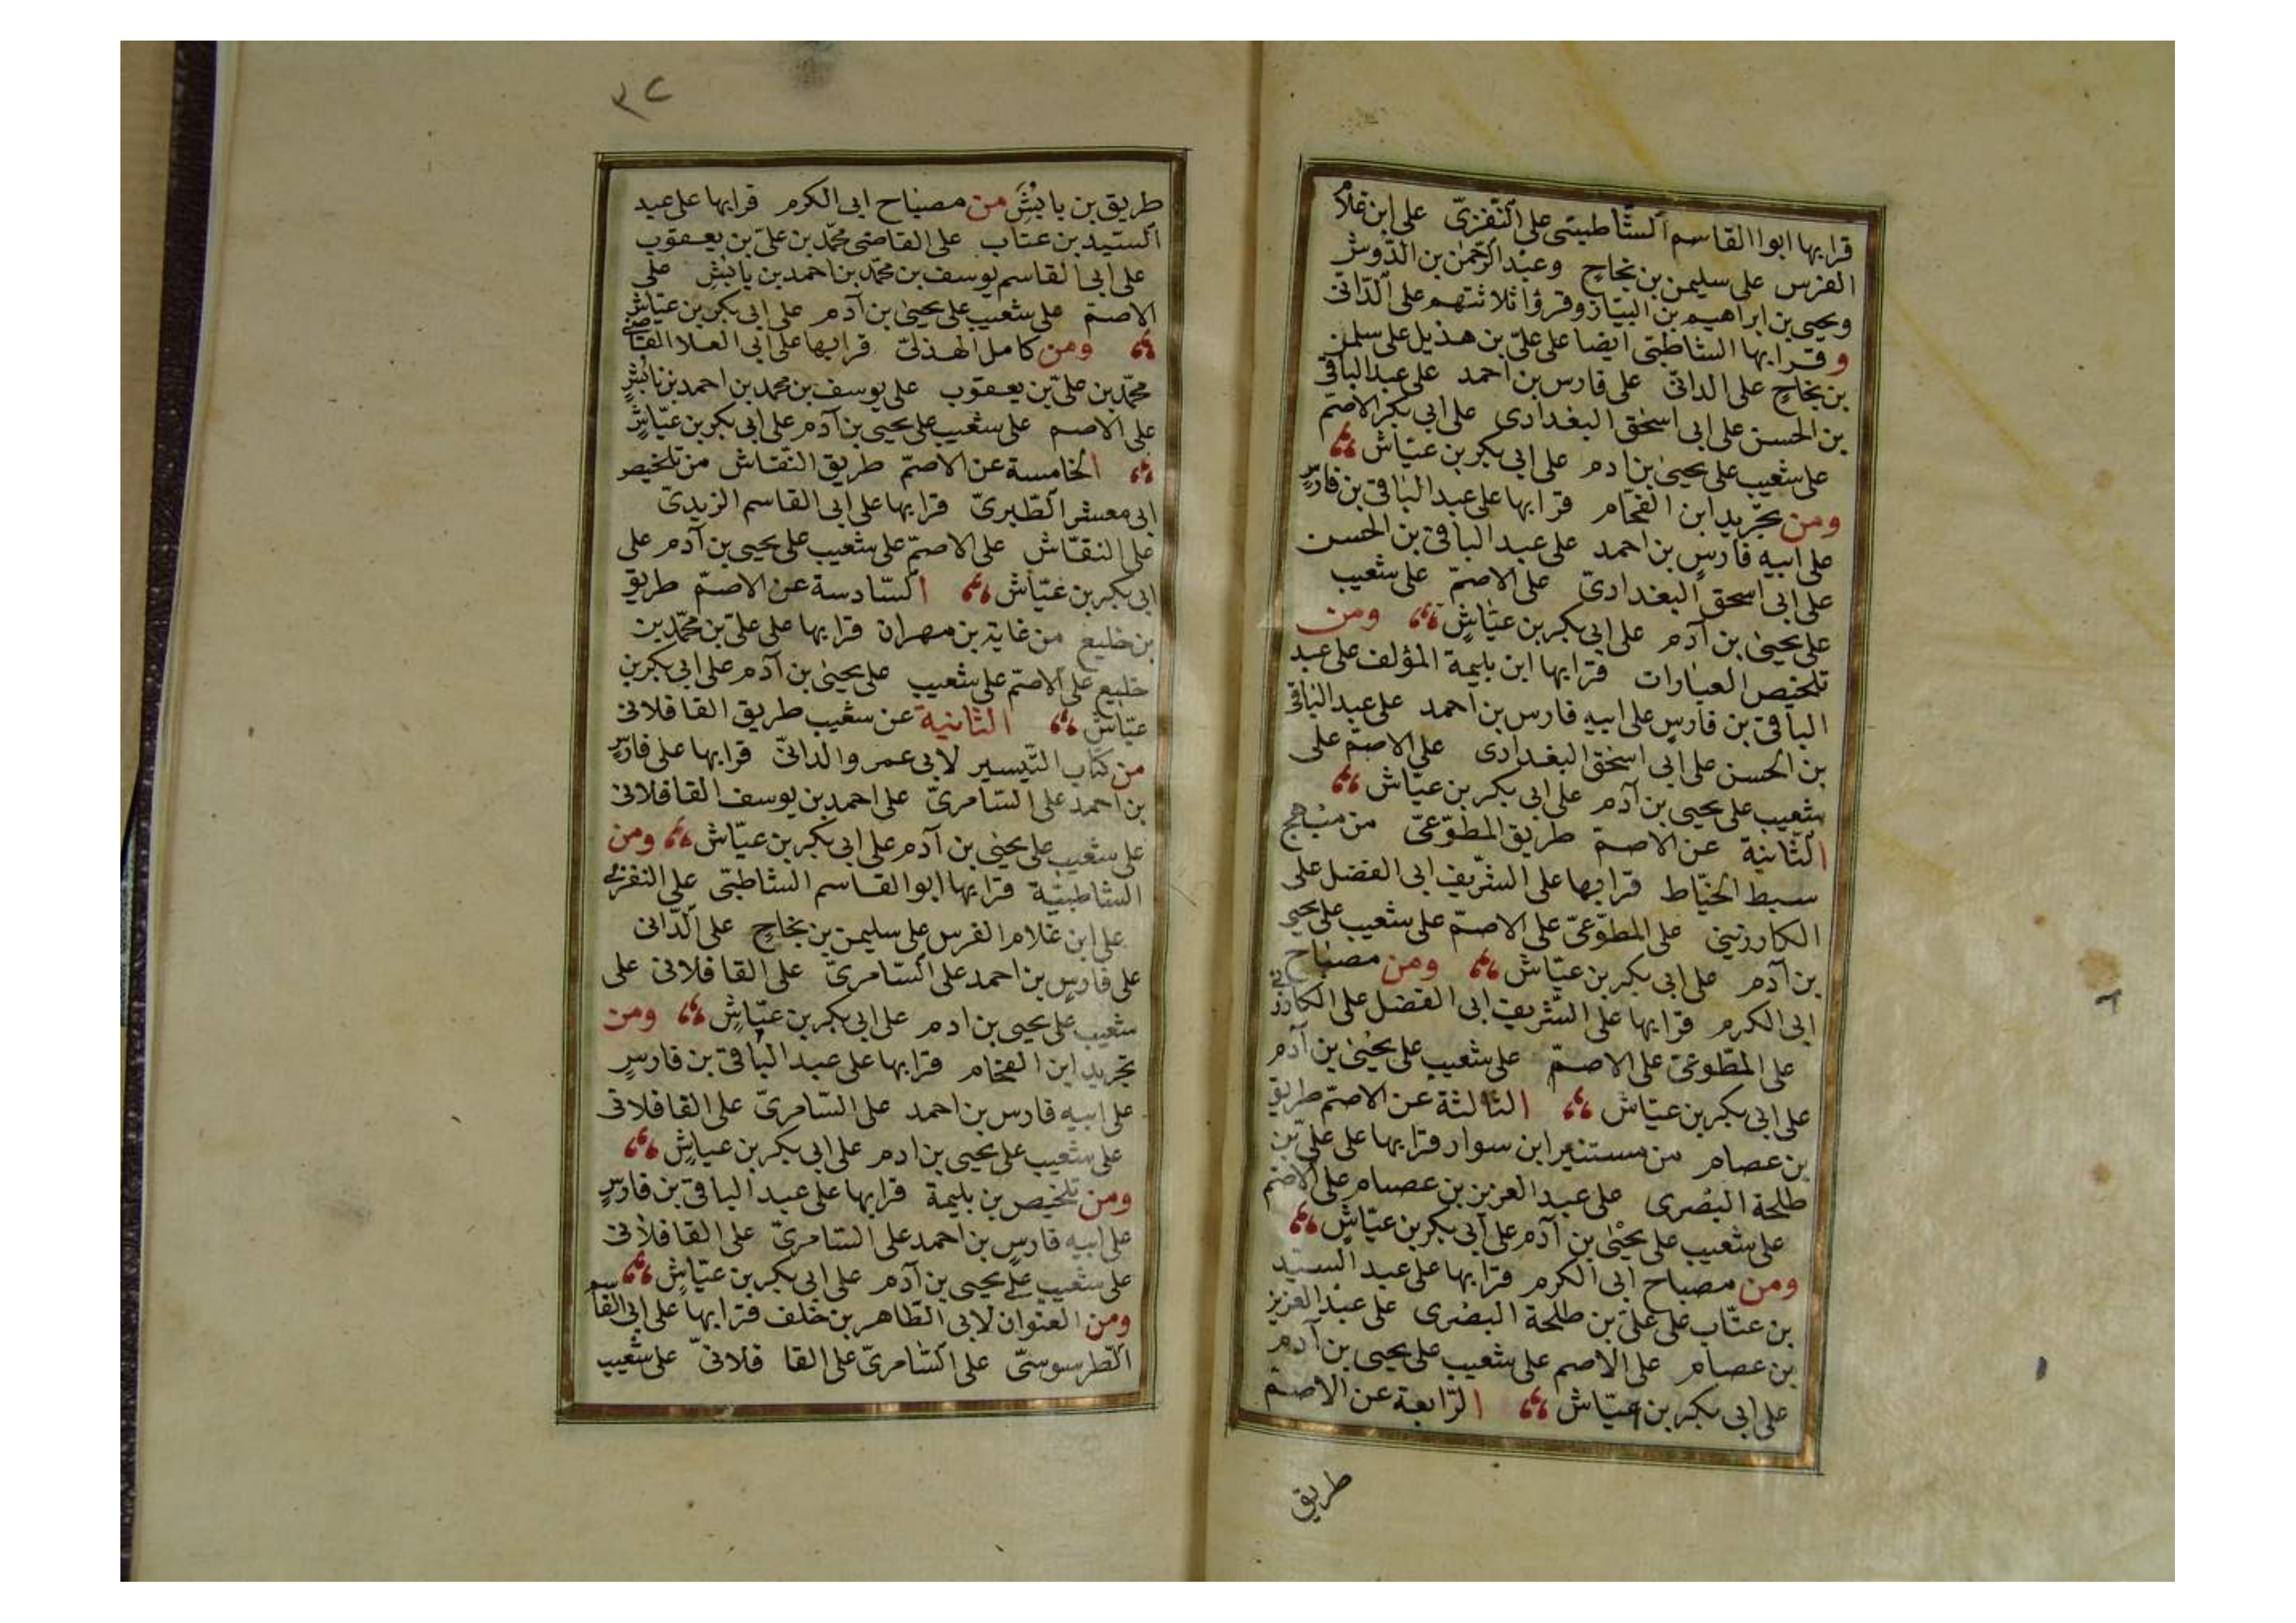 قرا بها ابو القاسم الشّاطبيّ على النّفزيّ على ابن غلام
الفرس على سليمن بن نجاح وعبد الرّحمن بن الدّوش
ويحيى بن ابراهيم بن البيّاز وقرؤا ثلاثتهم على الدّانى
وقرا بها الشاطبى ايضا على علىّ بن هذيل على سليمن
بن نجاح على الدانىّ على فارس بن احمد على عبد الباقى
بن الحسن على ابى اسحق البغدادى على ابى بكر الاصمّ
على شعيب على يحيى بن ادم على ابى بكر بن عيّاش
ومن تجريد ابن الفحّام قرا بها على عبد الباقى بن فارس
على ابيه فارس بن احمد على عبد الباقى بن الحسن
على ابى اسحق البغدادىّ على الاصمّ على شعيب
على يحيى بن آدم على ابى بكر بن عيّاش ومن
تلخيص العبارات قرا بها ابن بليمة المؤلف على عبد
الباقى بن فارس على ابيه فارس بن احمد على عبد الباقى
بن الحسن على ابى اسحق البغدادى على الاصمّ على
شعيب على يحيى بن آدم على ابى بكر بن عيّاش
الثّانية عن الاصمّ طريق المطّوّعىّ من مبهج
سبط الخيّاط قرا بها على الشّريف ابى الفضل على
الكارزينى على المطوّعىّ على الاصمّ على شعيب على يحيى
بن آدم على ابى بكر بن عيّاش ومن مصباح
ابى الكرم قرا بها على الشّريف ابى الفضل على الكارزينى
على المطّوعىّ على الاصمّ على شعيب على يحيى بن آدم
على ابى بكر بن عيّاش الثالثة عن الاصمّ طريق
بن عصام من مستنير ابن سوار قرا بها على علىّ بن
طلحة البصرى على عبد العزيز بن عصام على الاصمّ
على شعيب على يحيى بن آدم على ابى بكر بن عيّاش
ومن مصباح ابى الكرم قرا بها على عبد السيّد
بن عتّاب على علىّ بن طلحة البصرى على عبد العزيز
بن عصام على الاصم على شعيب على يحيى بن آدم
على ابى بكر بن عيّاش الرّابعة عن الاصمّ
طريق
٣٢
طريق بن بابُش من مصباح ابى الكرم قرا بها على عبد
السّيد بن عتاب على القاضى محمّد بن علىّ بن يعقوب
على ابى القاسم يوسف بن محمّد بن احمد بن بابُش على
الاصمّ على شعيب على يحيى بن آدم على ابى بكر بن عيّاش
ومن كامل الهذلىّ قرا بها على ابى العلا القاضى
محمّد بن علىّ بن يعقوب على يوسف بن محمد بن احمد بن بابُش
على الاصم على شعيب على يحيى بن آدم على ابى بكر بن عيّاش
الخامسة عن الاصمّ طريق النّقاش من تلخيص
ابى معشر الطّبرىّ قرا بها على ابى القاسم الزيدىّ
على النقّاش على الاصمّ على شعيب على يحيى بن آدم على
ابى بكر بن عيّاش السّادسة عن الاصمّ طريق
بن خليع من غاية بن مهران قرا بها على علىّ بن محمّد بن
خليع على الاصمّ على شعيب على يحيى بن آدم على ابى بكر بن
عيّاش الثانية عن شعيب طريق القافلانى
من كتاب التّيسير لابى عمرو الدانىّ قرا بها على فارس
بن احمد على السّامرىّ على احمد بن يوسف القافلانى
على شعيب على يحيى بن آدم على ابى بكر بن عيّاش ومن
الشاطبيّة قرا بها ابو القاسم الشاطبىّ على النفزى
على ابن غلام الفرس على سليمن بن نجاح على الدّانى
على فارس بن احمد على السّامرىّ على القافلانى على
شعيب على يحيى بن ادم على ابى بكر بن عيّاش ومن
تجريد ابن الفحّام قرا بها على عبد الباقى بن فارس
على ابيه فارس بن احمد على السّامرىّ على القافلانى
على شعيب على يحيى بن ادم على ابى بكر بن عياش
ومن تلخيص بن بليمة قرا بها على عبد الباقى بن فارس
على ابيه فارس بن احمد على السّامرىّ على القافلانى
على شعيب على يحيى بن آدم على ابى بكر بن عيّاش
ومن العنوان لابى الطّاهر بن خلف قرا بها على ابى القاسم
الطّرسوسىّ على السّامرىّ على القا فلانىّ على شعيب